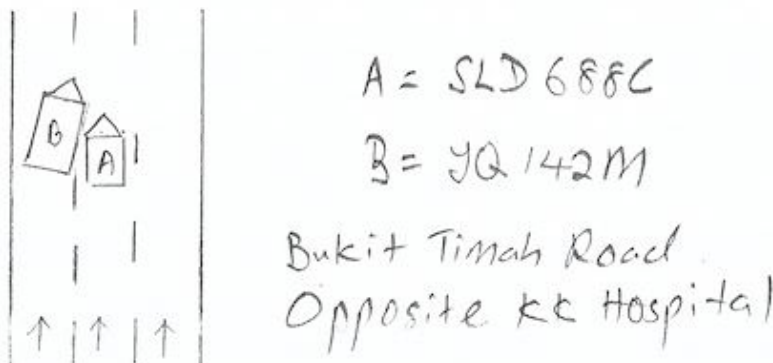 B
A
A = SLD 688C
B = YQ 142M
Bukit Timah Road
Opposite KK Hospital